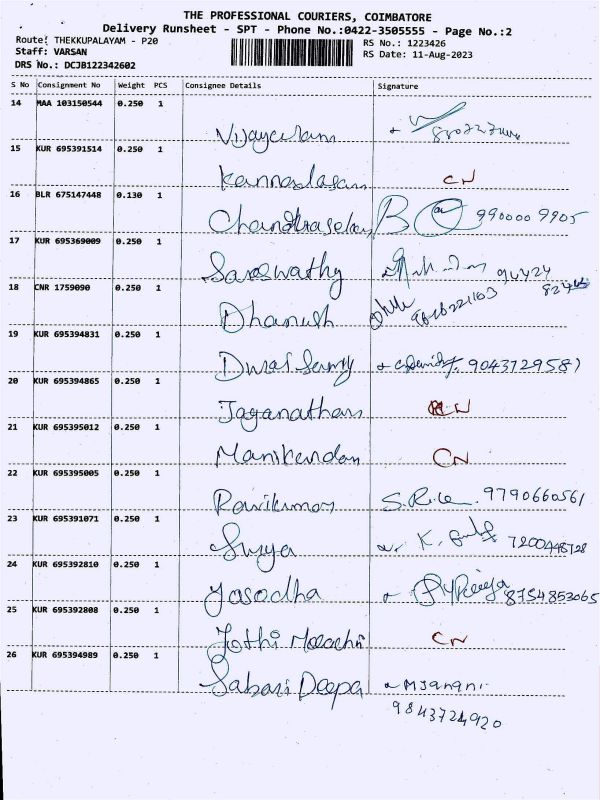 THE PROFESSIONAL COURIERS, COIMBATORE
Delivery Runsheet - SPT - Phone No.:0422-3505555 - Page No.:2
Route: THEKKUPALAYAM - P20 RS No.: 1223426
Staff: VARSAN RS Date: 11-Aug-2023
DRS No.: DCJB122342602
S No Consignment No Weight PCS Consignee Details Signature
14 MAA 103150544 0.250 1
Vijayaram
15 KUR 695391514 0.250 1
Kannadasan CN
16 BLR 675147448 0.130 1
Chandrasekar 990000 9905
17 KUR 695369009 0.250 1
Saraswathy 94424
18 CNR 1759090 0.250 1
Dhanush
19 KUR 695394831 0.250 1
Durai Samy 9043729587
20 KUR 695394865 0.250 1
Jaganathan CN
21 KUR 695395012 0.250 1
Manikandan CN
22 KUR 695395005 0.250 1
Ravikumar 9790660561
23 KUR 695391071 0.250 1
Surya 7200448728
24 KUR 695392810 0.250 1
Yasodha 8754853065
25 KUR 695392808 0.250 1
Jothi CN
26 KUR 695394989 0.250 1
Sabari Deepa M Janani
9843724920